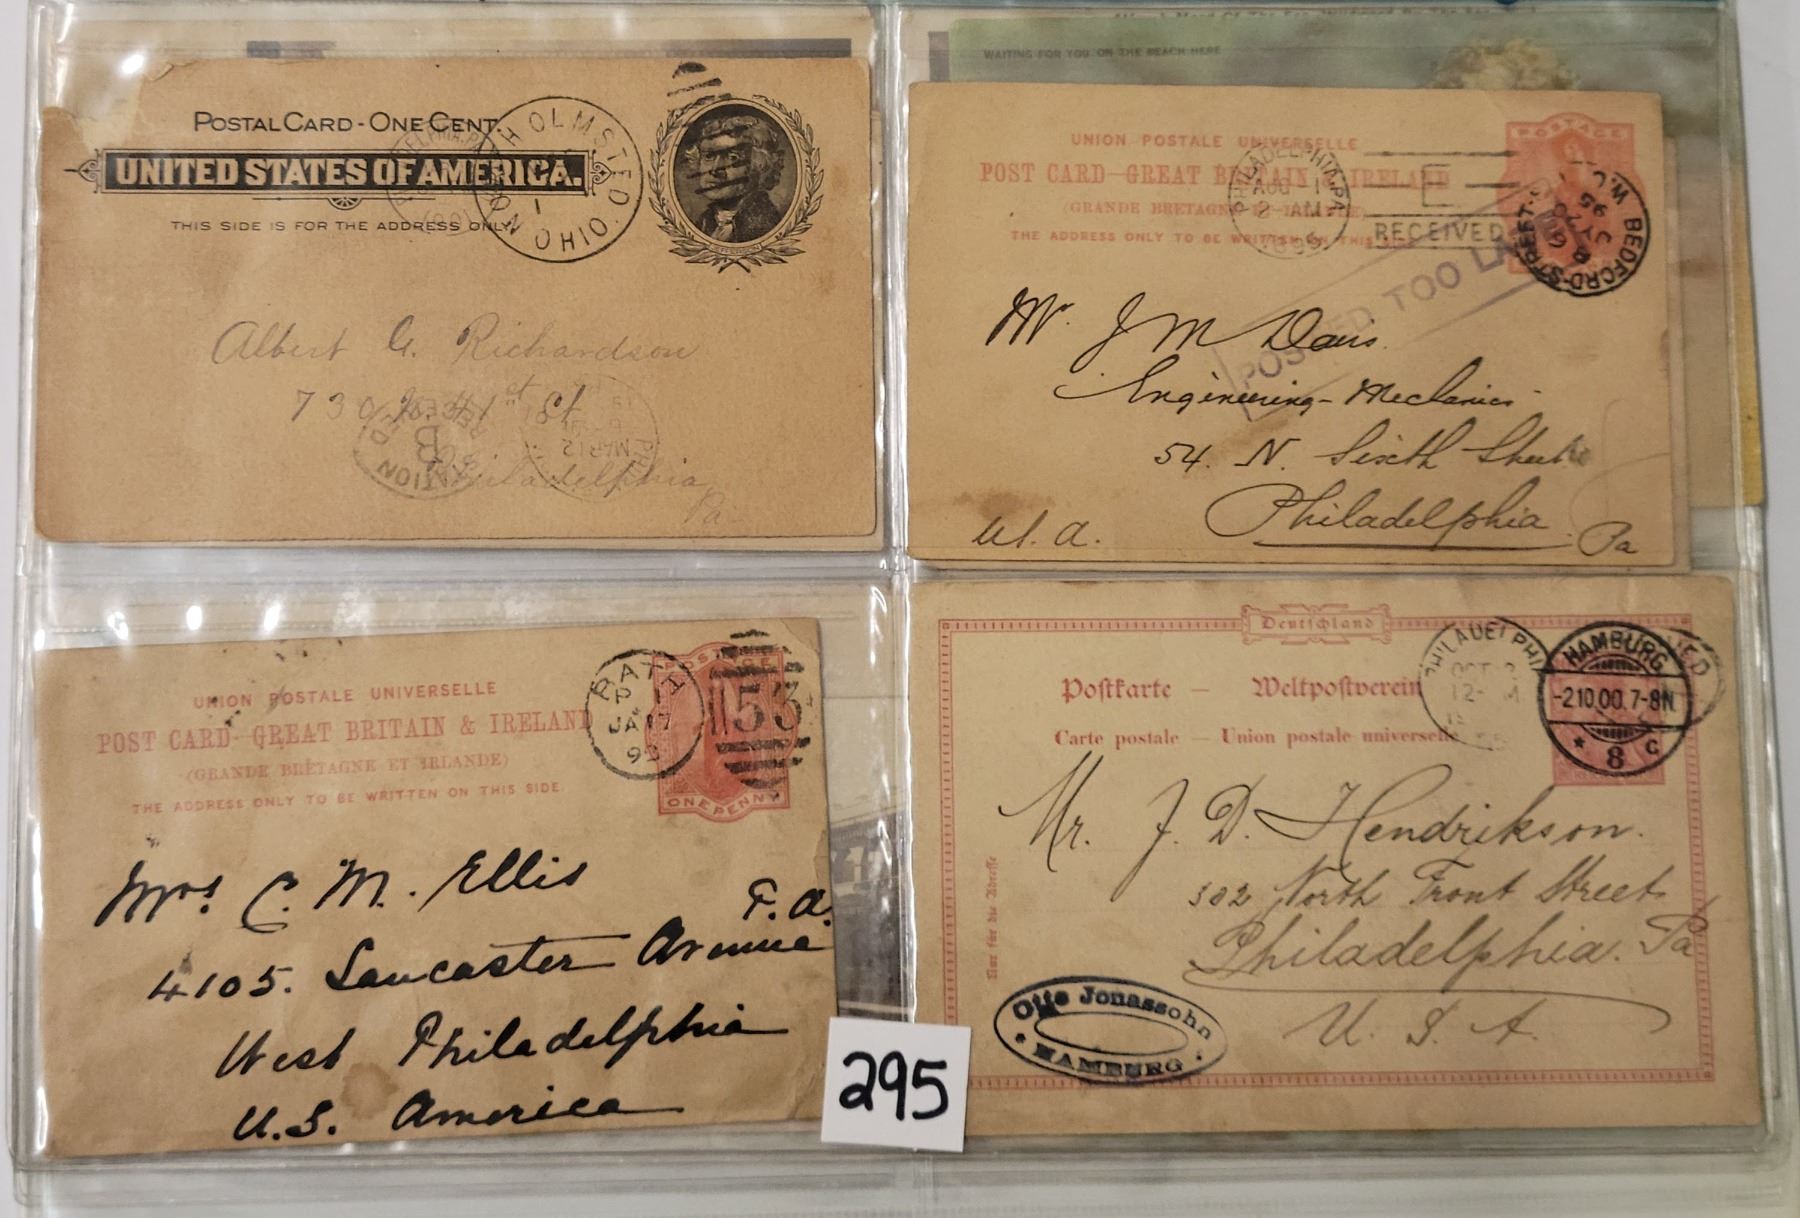 POSTAL CARD - ONE CENT.
UNITED STATES OF AMERICA.
THIS SIDE IS FOR THE ADDRESS ONLY.
HOLMSTED. OHIO
JEFFERSON
Albert G. Richardson
730 N. 41st St
Philadelphia
Pa
STATION B
RECEIVED
MAR 12
WAITING FOR YOU ON THE BEACH HERE
UNION POSTALE UNIVERSELLE
POST CARD - GREAT BRITAIN & IRELAND
(GRANDE BRETAGNE ET IRLANDE)
THE ADDRESS ONLY TO BE WRITTEN ON THIS SIDE
POSTAGE
PHILADELPHIA, PA.
AUG 1
2 AM
1895
E
RECEIVED
BEDFORD-STREET-S.O. W.C.
JY 20
95
POSTED TOO LATE
Mr. J M Davis.
Engineering-Mechanics
54. N. Sixth Street
Philadelphia
Pa
U.S.A.
UNION POSTALE UNIVERSELLE
POST CARD - GREAT BRITAIN & IRELAND
(GRANDE BRETAGNE ET IRLANDE)
THE ADDRESS ONLY TO BE WRITTEN ON THIS SIDE.
POSTAGE
ONE PENNY
JA 17
53
Mrs. C. M. Ellis
P.A.
4105. Lancaster Avenue
West Philadelphia
U.S. America
Deutschland
Postkarte — Weltpostverein
Carte postale — Union postale universelle
PHILADELPHI
OCT 2
HAMBURG
-2.10.00.7-8N.
* 8 c
Mr. J. D. Hendrikson.
302 North Front Street
Philadelphia. Pa
U. S. A.
Nur für die Adresse
Otto Jonassohn
HAMBURG
295